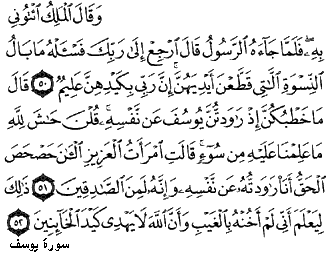 وَقَالَ ٱلْمَلِكُ ٱئْتُونِى
بِهِۦ فَلَمَّا جَآءَهُ ٱلرَّسُولُ قَالَ ٱرْجِعْ إِلَىٰ رَبِّكَ فَسْـَٔلْهُ مَا بَالُ
ٱلنِّسْوَةِ ٱلَّـٰتِى قَطَّعْنَ أَيْدِيَهُنَّ إِنَّ رَبِّى بِكَيْدِهِنَّ عَلِيمٌ ٥٠ قَالَ
مَا خَطْبُكُنَّ إِذْ رَٰوَدتُّنَّ يُوسُفَ عَن نَّفْسِهِۦ قُلْنَ حَـٰشَ لِلَّهِ
مَا عَلِمْنَا عَلَيْهِ مِن سُوٓءٍ قَالَتِ ٱمْرَأَتُ ٱلْعَزِيزِ ٱلْـَٔـٰنَ حَصْحَصَ
ٱلْحَقُّ أَنَا۠ رَٰوَدتُّهُۥ عَن نَّفْسِهِۦ وَإِنَّهُۥ لَمِنَ ٱلصَّـٰدِقِينَ ٥١ ذَٰلِكَ
لِيَعْلَمَ أَنِّى لَمْ أَخُنْهُ بِٱلْغَيْبِ وَأَنَّ ٱللَّهَ لَا يَهْدِى كَيْدَ ٱلْخَآئِنِينَ ٥٢
سورة يوسف